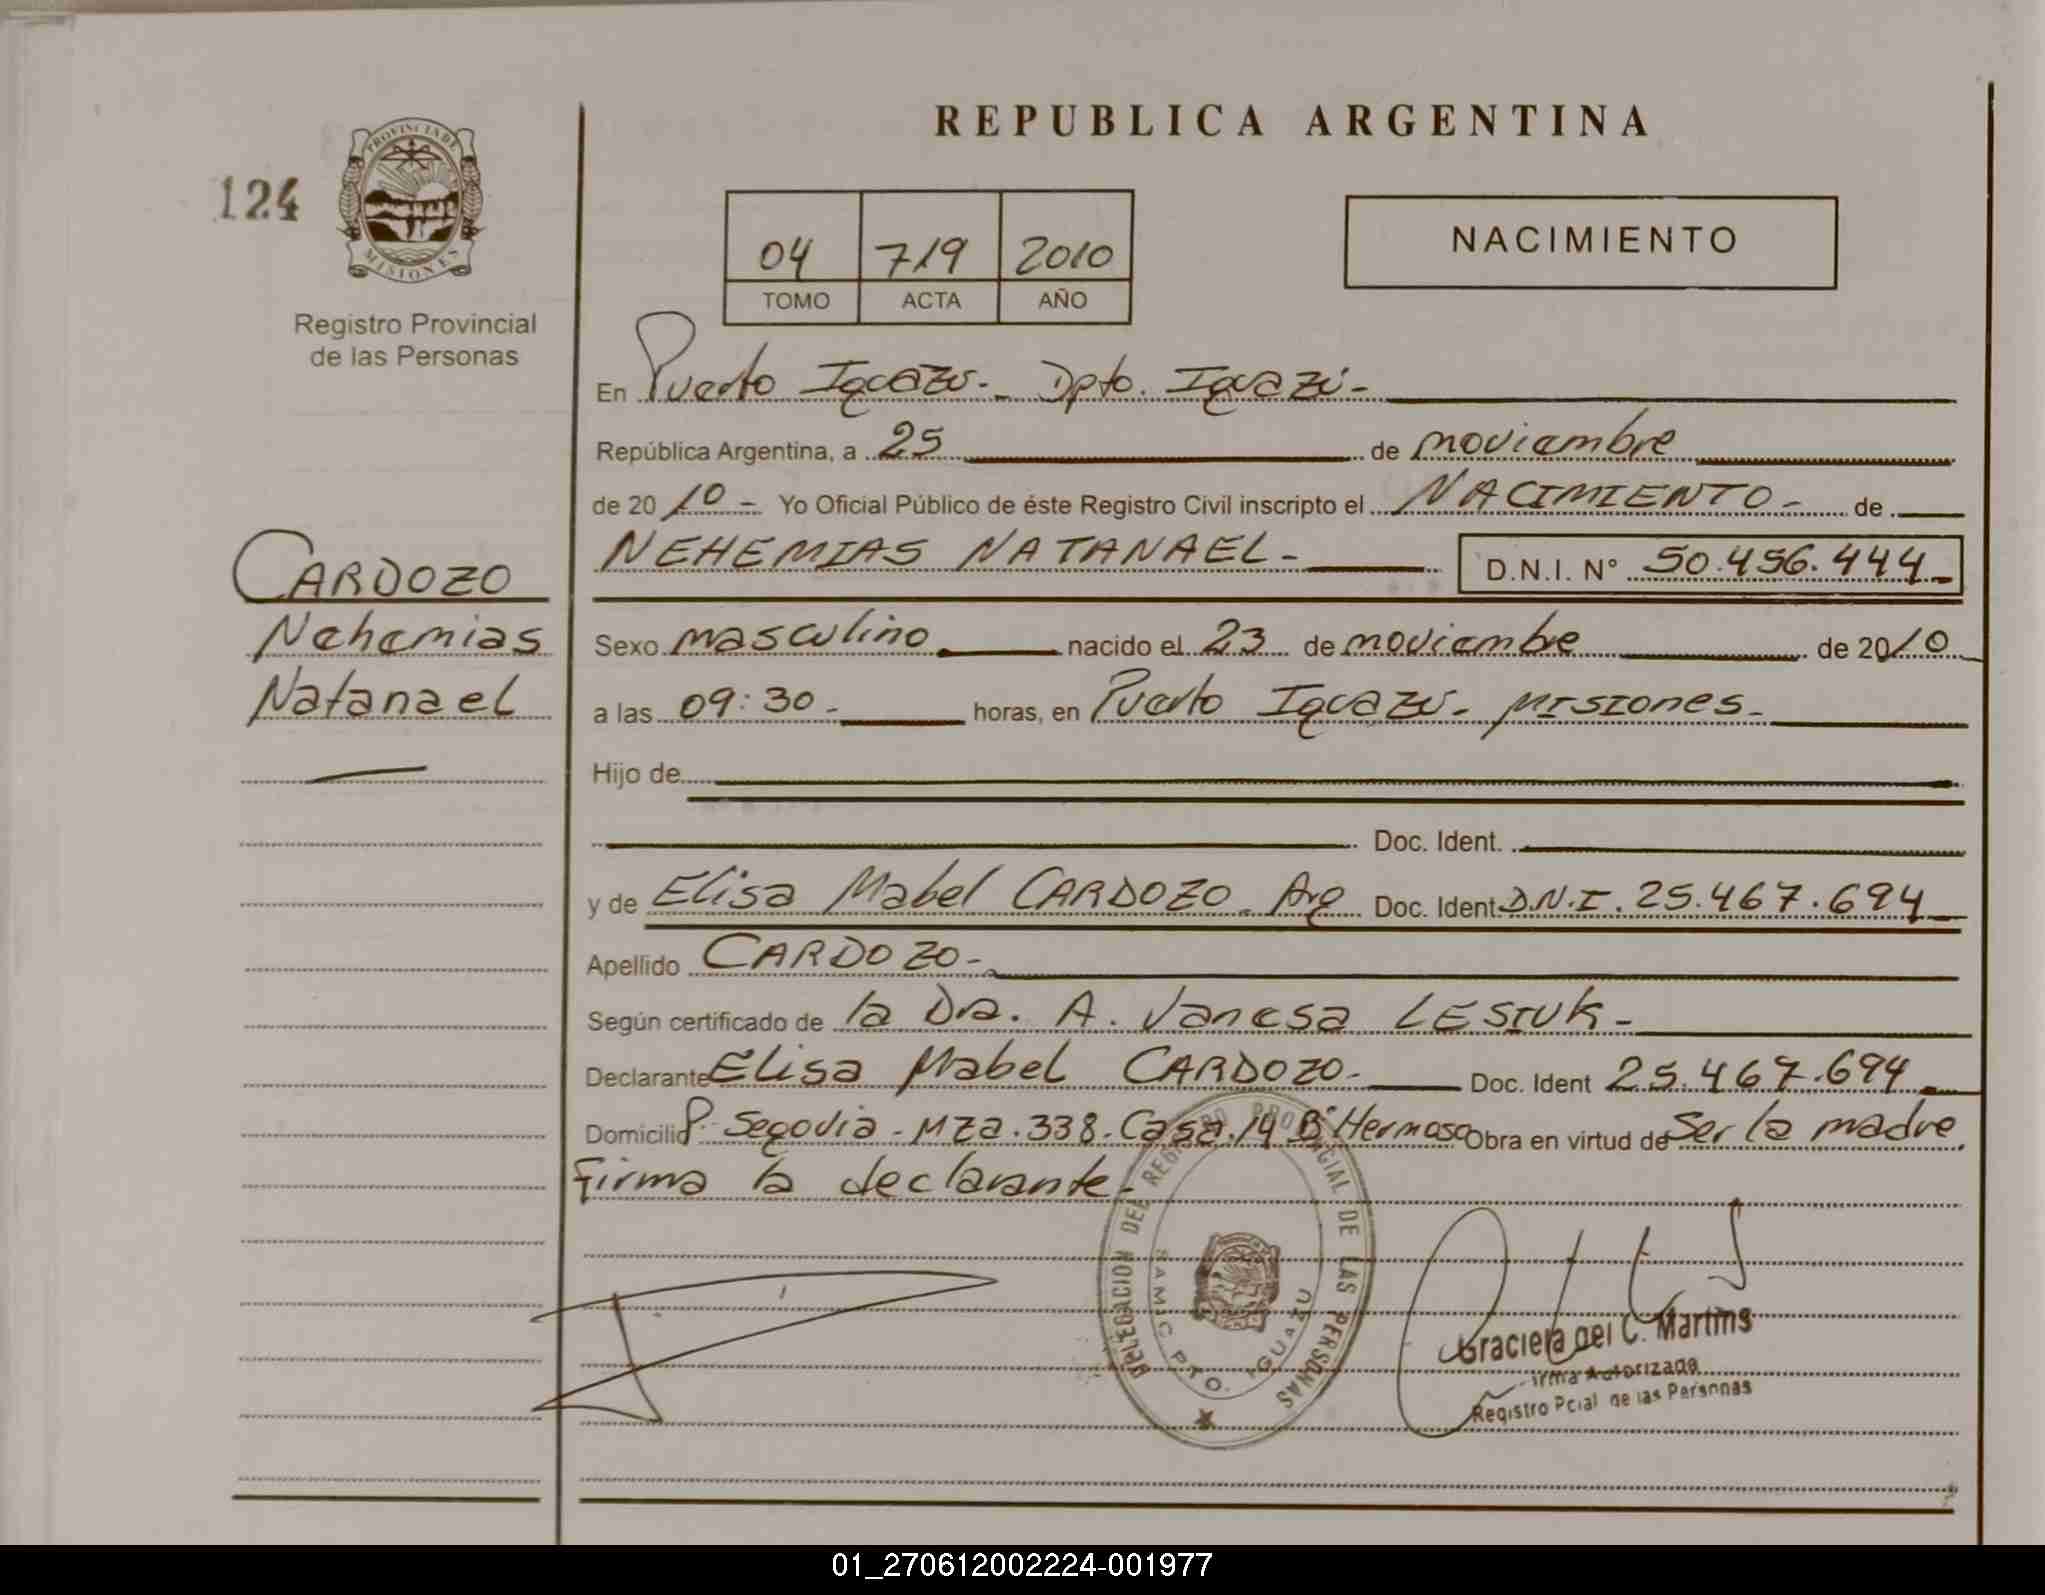 REPUBLICA ARGENTINA
124
PROVINCIA DE
MISIONES
Registro Provincial
de las Personas
04 719 2010
TOMO ACTA AÑO
NACIMIENTO
En Puerto Iguazú - Dpto. Iguazú -
República Argentina, a 25 de noviembre
de 20 10 - Yo Oficial Público de éste Registro Civil inscripto el NACIMIENTO - de
NEHEMIAS NATANAEL - D.N.I. N° 50.456.444
CARDOZO
Nehemias
Natanael
Sexo masculino nacido el 23 de noviembre de 2010
a las 09:30 - horas, en Puerto Iguazú - Misiones -
Hijo de
Doc. Ident.
y de Elisa Mabel CARDOZO - Arg Doc. Ident. D.N.I. 25.467.694
Apellido CARDOZO -
Según certificado de la Dra. A. Vanesa LESIUK -
Declarante Elisa Mabel CARDOZO - Doc. Ident 25.467.694
Domicilio P. Segovia - Mza. 338 - Casa. 14 B° Hermoso Obra en virtud de Ser la madre.
Firma la declarante -
DELEGACION DEL REGISTRO PROVINCIAL DE LAS PERSONAS
SAMIC PTO. IGUAZU
Graciela del C. Martins
Firma Autorizada
Registro Pcial de las Personas
01_270612002224-001977